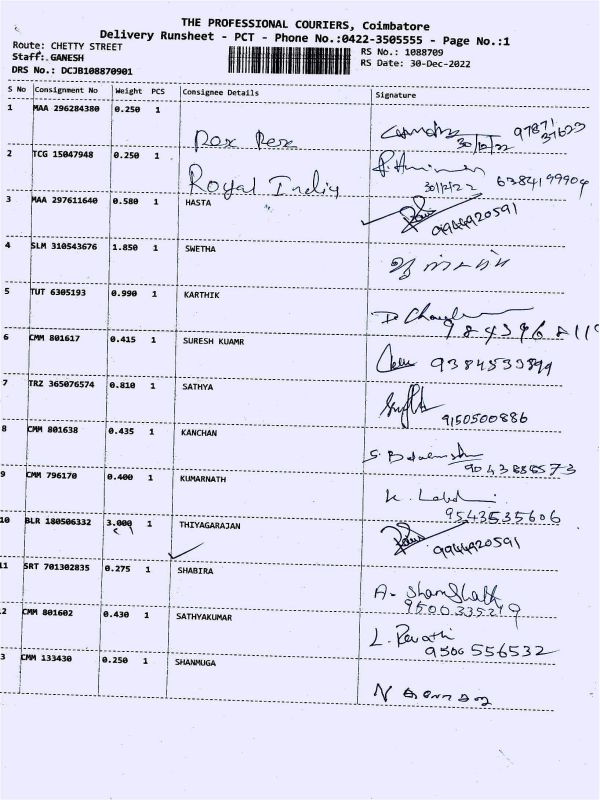 THE PROFESSIONAL COURIERS, Coimbatore
Delivery Runsheet - PCT - Phone No.:0422-3505555 - Page No.:1
Route: CHETTY STREET
RS No.: 1088709
Staff: GANESH
RS Date: 30-Dec-2022
DRS No.: DCJB108870901
S No Consignment No Weight PCS Consignee Details Signature
1 MAA 296284380 0.250 1
97871
37623
30/12/22
2 TCG 15047948 0.250 1 Royal India
30/12/22 6384199904
3 MAA 297611640 0.580 1 HASTA
9944920591
4 SLM 310543676 1.850 1 SWETHA
5 TUT 6305193 0.990 1 KARTHIK
6 CMM 801617 0.415 1 SURESH KUAMR
9384533899
7 TRZ 365076574 0.810 1 SATHYA
9150500886
8 CMM 801638 0.435 1 KANCHAN
9043888573
9 CMM 796170 0.400 1 KUMARNATH
9543535606
10 BLR 180506332 3.000 1 THIYAGARAJAN
9944920591
11 SRT 701302835 0.275 1 SHABIRA
2 CMM 801602 0.430 1 SATHYAKUMAR
L. Revathi
9500556532
3 CMM 133430 0.250 1 SHANMUGA